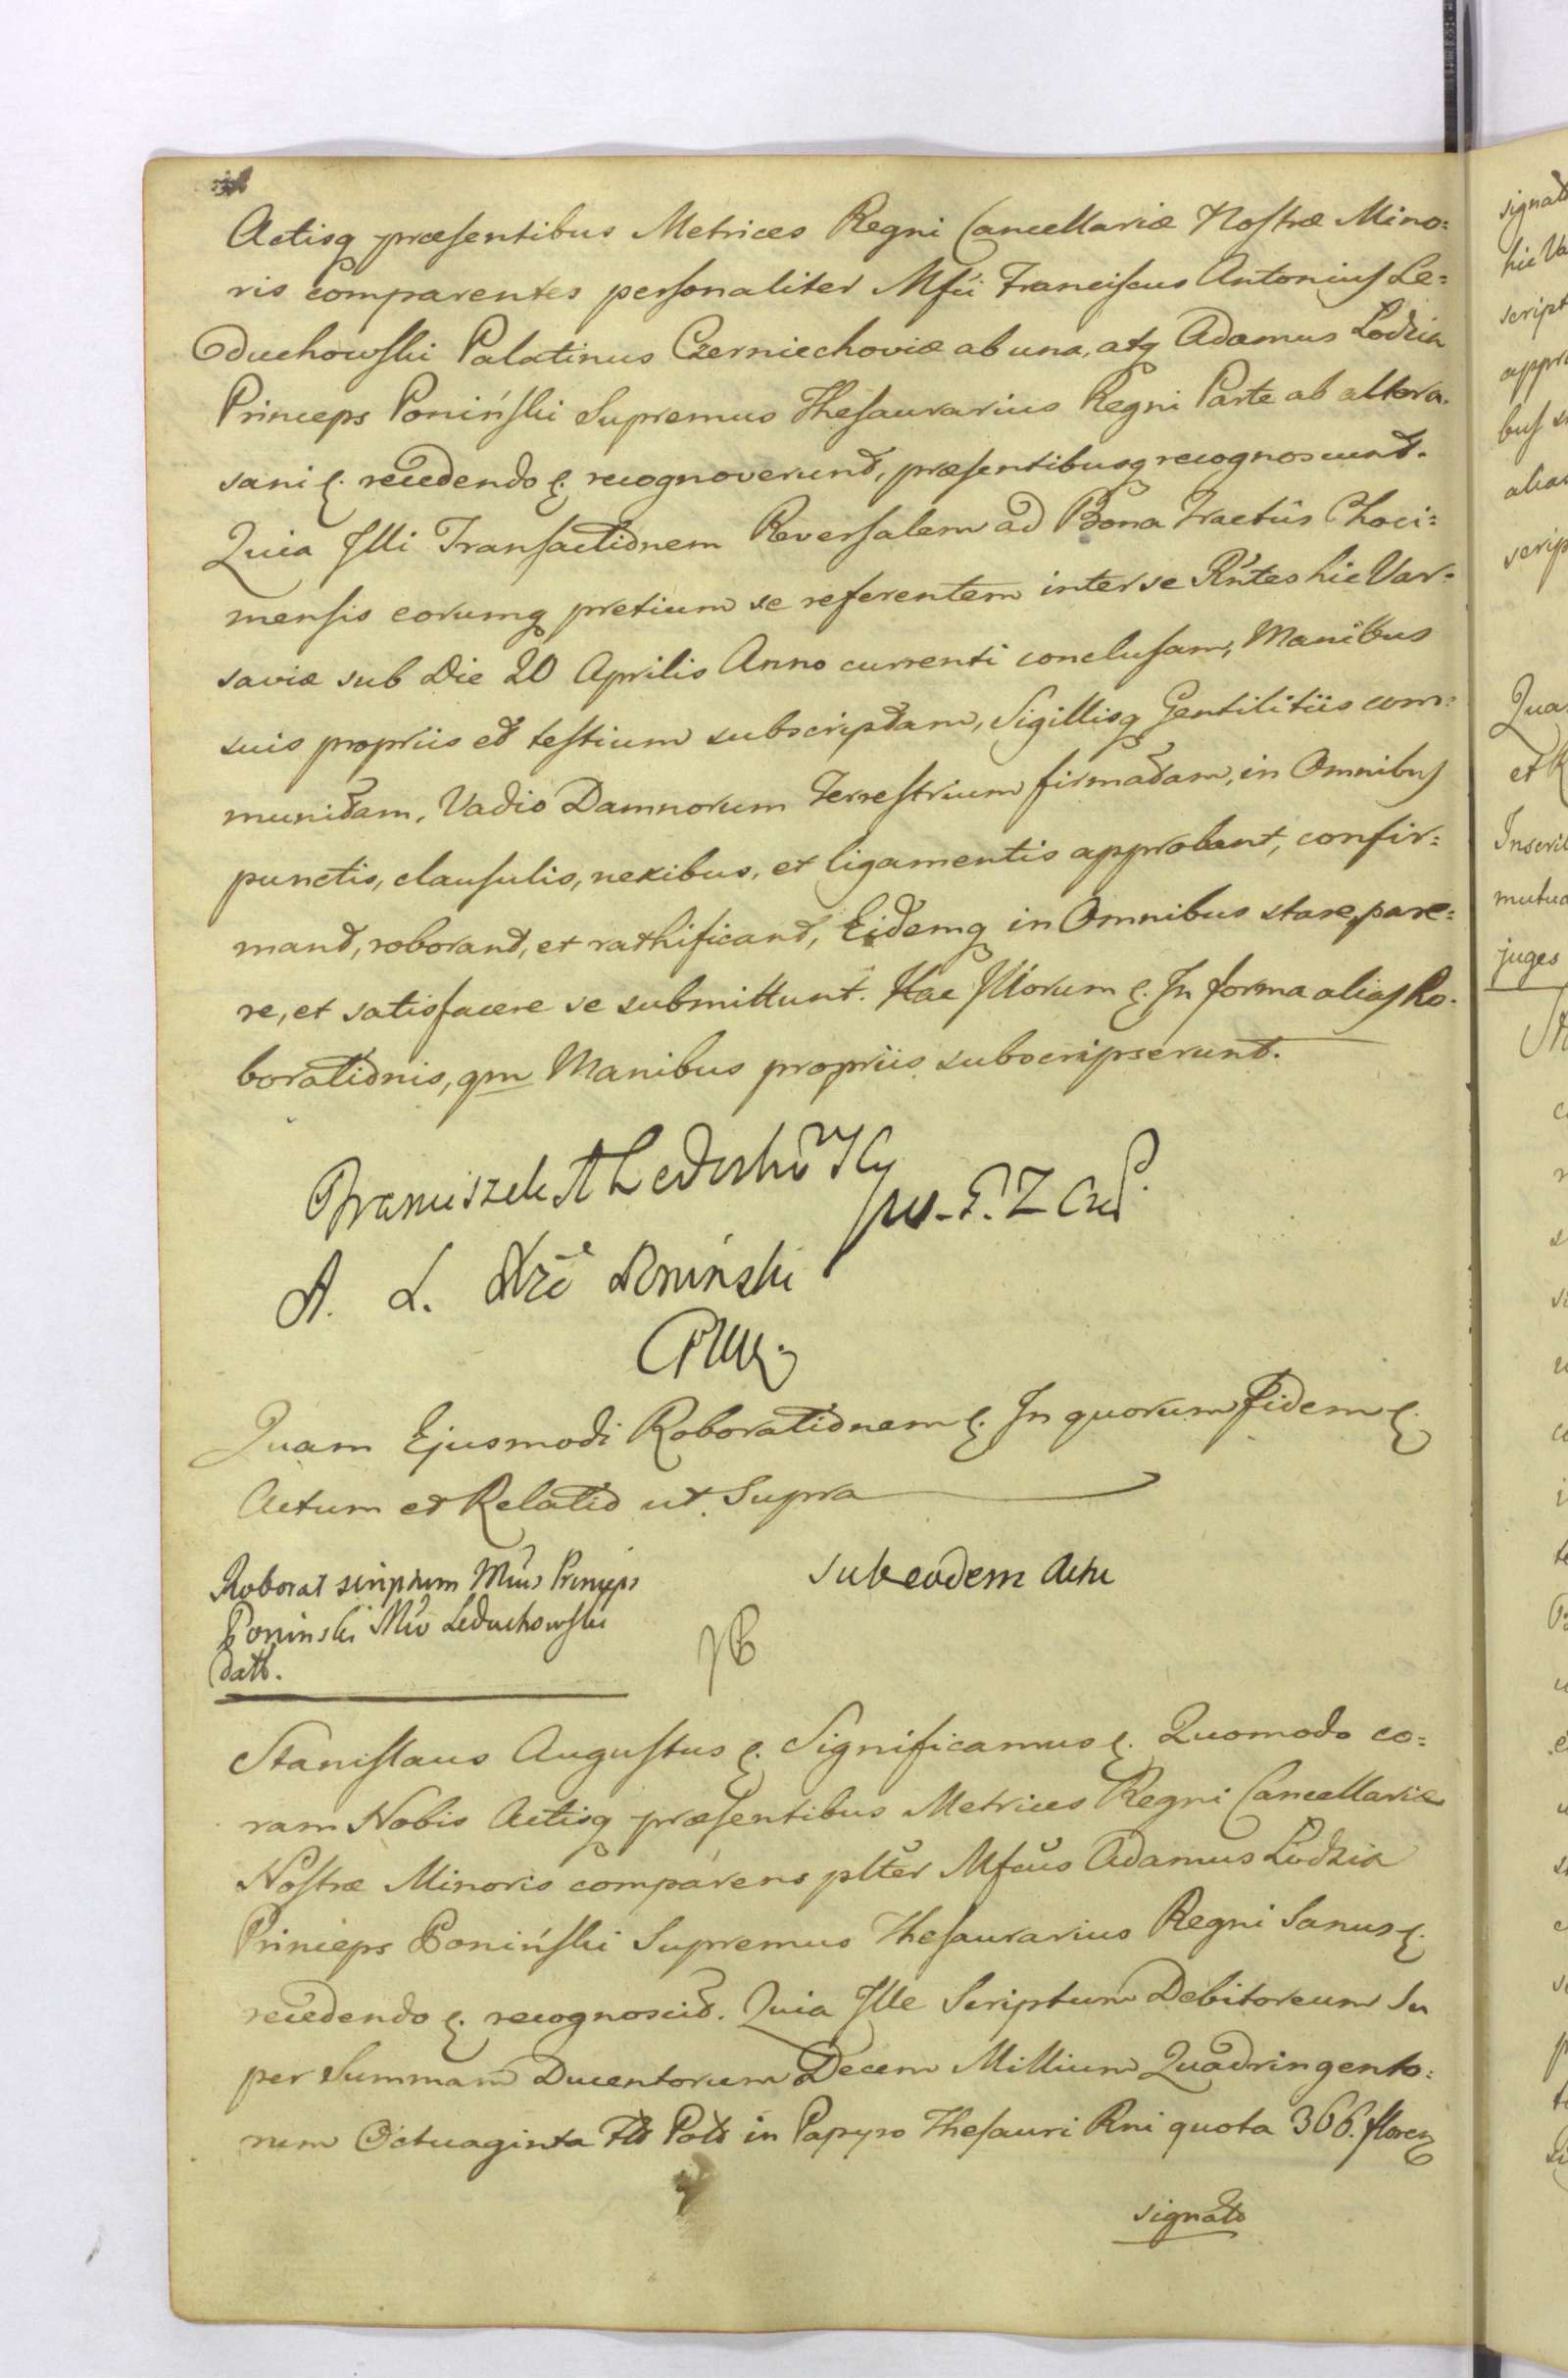 Actisq præsentibus Metrices Regni Cancellariæ Nostræ Mino:
ris comparentes personaliter Mfci Franciscus Antonius Le=
duchowski Palatinus Czerniechoviæ ab una, atq Adamus Lodzia
Princeps Poniński Supremus Thesaurarius Regni Parte ab altera.
sani &. recedendo &. recognoverunt, præsentibusq recognoscunt.
Quia Illi Transactionem Reversalem ad Bona Tractûs Choci=
mensis eorumq pretium se referentem inter se Rn̄tes hic Var=
saviæ sub Die 20 Aprilis Anno currenti conclusam, Manibus
suis propriis et testium subscriptam, Sigillisq Gentilitiis com=
munitam, Vadio Damnorum Terrestrium firmatam, in Omnibus
punctis, clausulis, nexibus, et ligamentis approbant, confir=
mant, roborant, et rathificant, Eidemq in Omnibus stare, pare=
re, et satisfacere se submittunt. Hac Illorum &. In forma alias Ro.
borationis, qm Manibus propriis subscripserunt.
Franciszek A Leduchowski
A. L. Xże Poniński
Quam Ejusmodi Roborationem &. In quorum Fidem &.
Actum et Relatio ut Supra
Roborat scriptum Mcus Princeps
Poninski Mco Leduchowski
datt.
Sub eodem Actu
Stanislaus Augustus &. Significamus &. Quomodo co=
ram Nobis Actisq præsentibus Metrices Regni Cancellariæ
Nostræ Minoris comparens plter Mfcus Adamus Lodzia
Princeps Poniński Supremus Thesaurarius Regni Sanus &.
recedendo &. recognoscit. Quia Ille Scriptum Debitoreum Su
per Summam Ducentorum Decem Millium Quadringento:
rum Octuaginta Fls Pols in Papyro Thesauri Rni quota 366. floren
signato